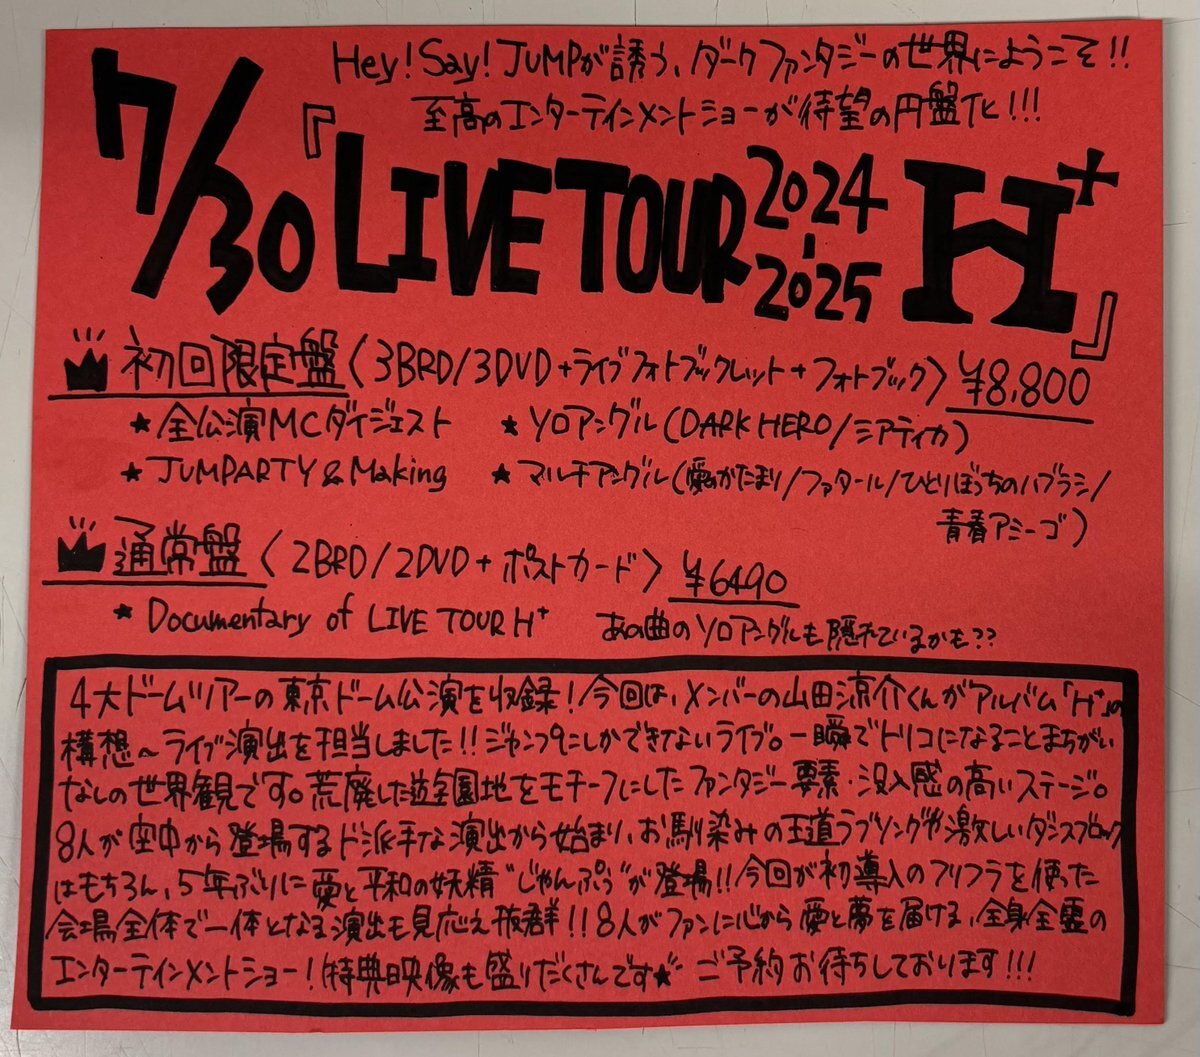 Hey!Say!JUMPが誘う、ダークファンタジーの世界にようこそ!!
至高のエンターテインメントショーが待望の円盤化!!!
7/30『LIVE TOUR 2024-2025 H⁺』
初回限定盤〈3BRD/3DVD+ライブフォトブックレット+フォトブック〉¥8,800
★全公演MCダイジェスト ★ソロアングル(DARK HERO/ミアティカ)
★JUMPARTY&Making ★マルチアングル(愛のかたまり/ファタール/ひとりぼっちのハブラシ/
青春アミーゴ)
通常盤〈2BRD/2DVD+ポストカード〉¥6490
★Documentary of LIVE TOUR H⁺ あの曲のソロアングルも隠れているかも??
4大ドームツアーの東京ドーム公演を収録!今回は、メンバーの山田涼介くんがアルバム「H⁺」の
構想〜ライブ演出を担当しました!!ジャンプにしかできないライブ。一瞬でトリコになることまちがい
なしの世界観です。荒廃した遊園地をモチーフにしたファンタジー要素・没入感の高いステージ。
8人が空中から登場するド派手な演出から始まり、お馴染みの王道ラブソングや激しいダンスブロック
はもちろん、5年ぶりに愛と平和の妖精"じゃんぷぅ"が登場!!今回が初導入のフリフラを使った
会場全体で一体となる演出も見応え抜群!!8人がファンに心から愛と夢を届ける、全身全霊の
エンターテインメントショー!特典映像も盛りだくさんです★ ご予約お待ちしております!!!